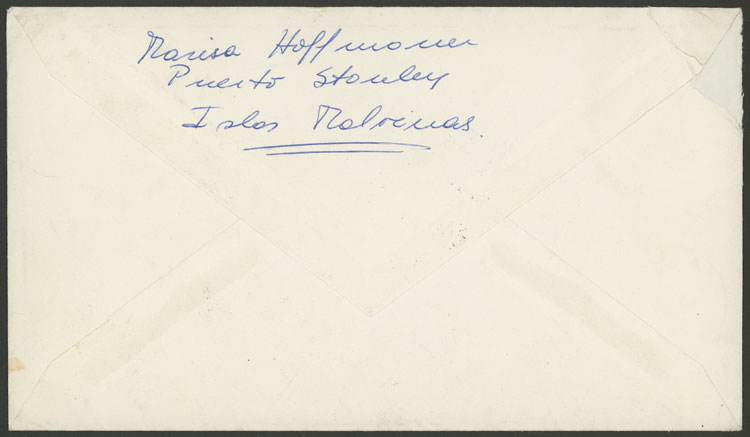 Marisa Hoffmann
Puerto Stanley
Islas Malvinas.